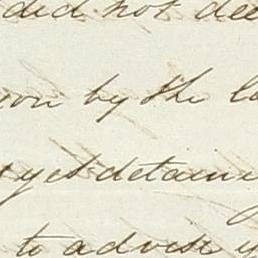 did not dee
by the la
yet detaine
to advise y